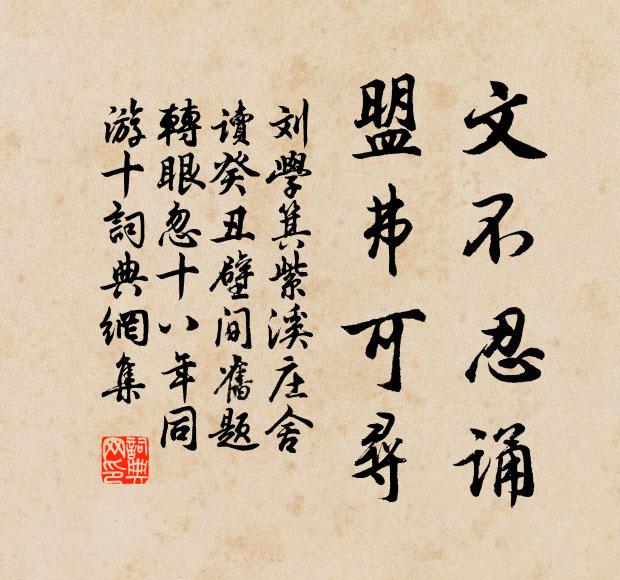 文不忍诵
盟弗可尋
刘學箕紫溪庄舍
讀癸丑壁间舊题
轉眼忽十八年同
游十詞典網集
詞典
网印